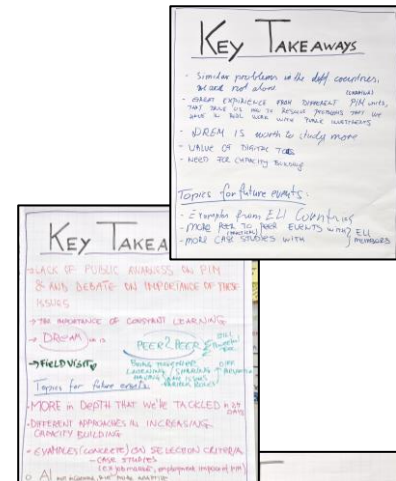 KEY TAKEAWAYS
- Similar problems in the diff countries,
we are not alone
- GREAT EXPERIENCE FROM DIFFERENT PIM units,
THAT GAVE US HOW TO RESOLVE PROBLEMS THAT WE
HAVE IN REAL WORK WITH PUBLIC INVESTMENTS
- DREAM IS worth to study more
- VALUE OF DIGITAL TOOLS
- NEED FOR CAPACITY BUILDING
Topics for future events:
- Examples from EU Countries
- MORE PEER TO PEER EVENTS WITH } EU
- MORE CASE STUDIES WITH } MEMBERS
KEY TAKEA
→ LACK OF PUBLIC AWARNESS ON PIM
& AND DEBATE ON IMPORTANCE OF THESE
ISSUES
→ THE IMPORTANCE OF CONSTANT LEARNING
→ DREAM
PEER2PEER
→ FIELD VISIT
BEING TOGETHER
LEARNING SHARING DIFF
Topics for future events:
- MORE in DEPTH THAT WE'VE TACKLED in 2.5
DAYS
- DIFFERENT APPROACHES IN INCREASING
CAPACITY BUILDING
- EXAMPLES (CONCRETE) ON SELECTION CRITERIA
- CASE STUDIES
AI